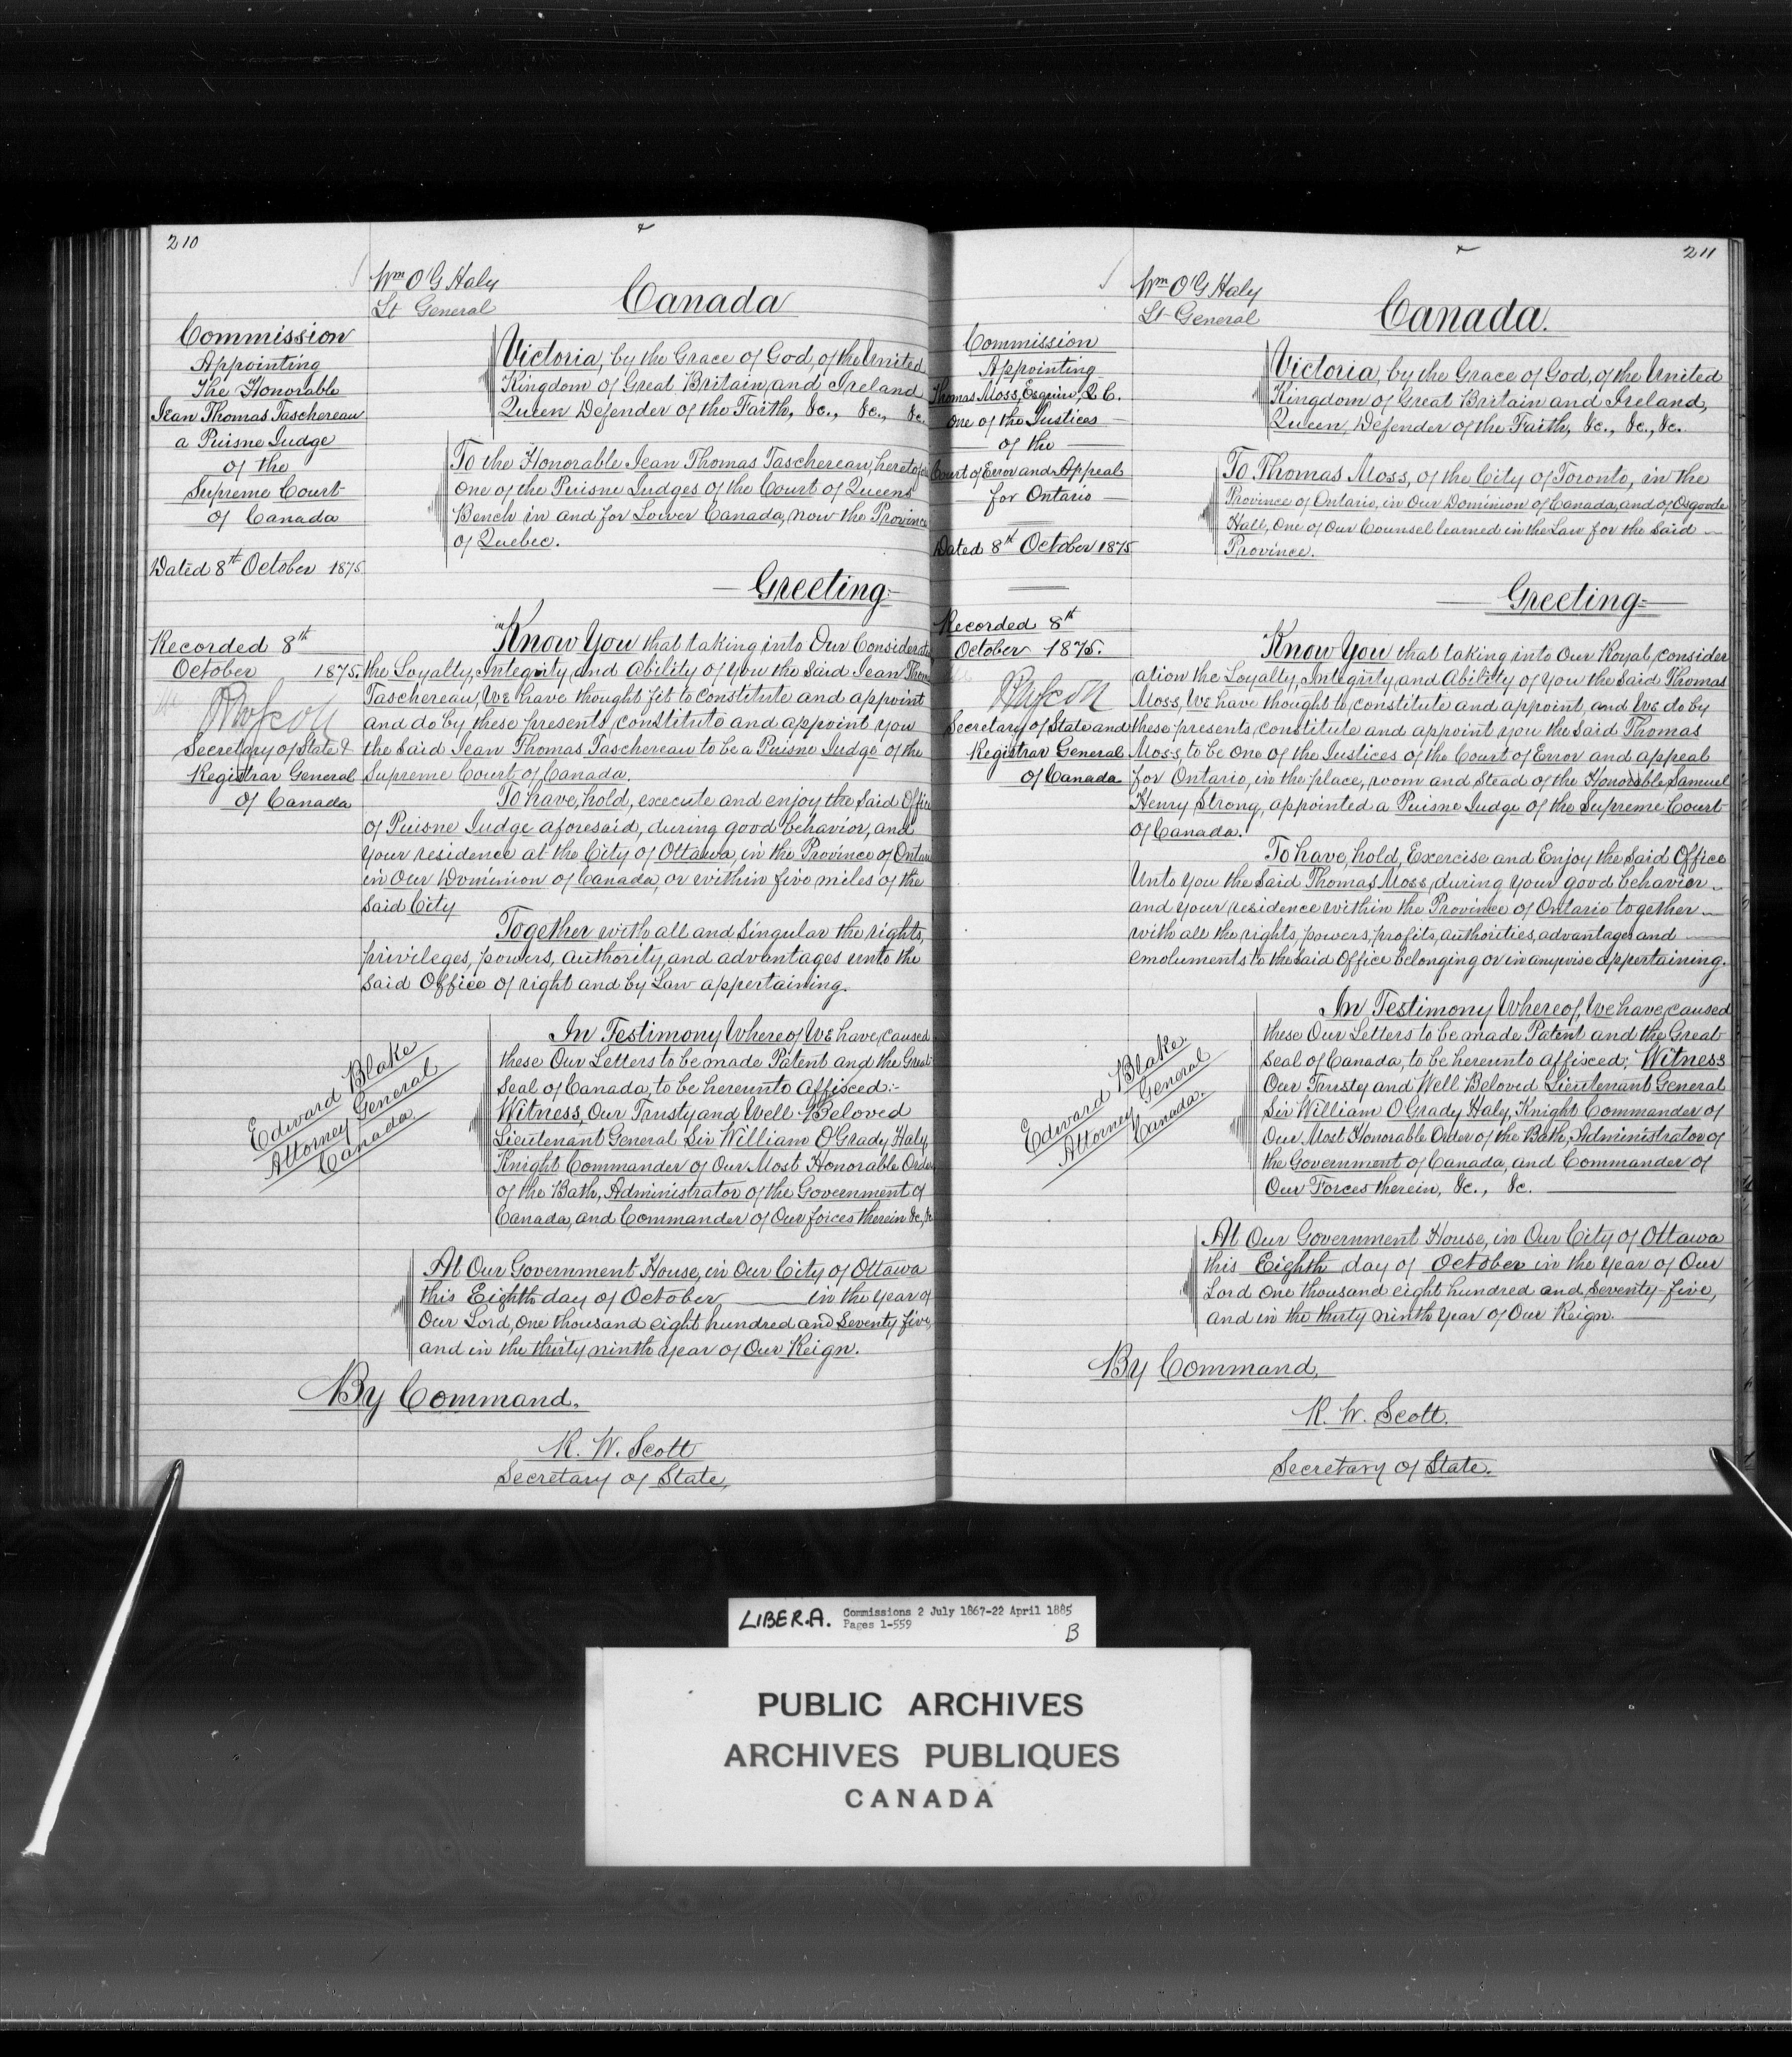 210
Wm O'G Haly
Lt General
Canada
Commission
Appointing
The Honorable
Jean Thomas Taschereau
a Puisne Judge
of the
Supreme Court
of Canada
Dated 8th October 1875
Recorded 8th
October 1875.
RWScott
Secretary of State &
Registrar General
of Canada
Victoria, by the Grace of God, of the United
Kingdom of Great Britain and Ireland
Queen Defender of the Faith, &c., &c., &c.
To the Honorable Jean Thomas Taschereau, heretofore
one of the Puisne Judges of the Court of Queens
Bench in and for Lower Canada, now the Province
of Quebec.
Greeting:-
Know You that taking into Our Consideration
the Loyalty, Integrity, and Ability of you the said Jean Thomas
Taschereau, We have thought fit to constitute and appoint
and do by these presents constitute and appoint you
the said Jean Thomas Taschereau to be a Puisne Judge of the
Supreme Court of Canada.
To have, hold, execute and enjoy the said Office
of Puisne Judge aforesaid, during good behavior, and
your residence at the City of Ottawa, in the Province of Ontario
in Our Dominion of Canada, or within five miles of the
said City
Together with all and singular the rights,
privileges, powers, authority, and advantages unto the
said Office of right and by Law appertaining.
Edward Blake
Attorney General
Canada
In Testimony Whereof We have caused
these Our Letters to be made Patent and the Great
Seal of Canada, to be hereunto Affixed:-
Witness, Our Trusty and Well Beloved
Lieutenant General Sir William O'Grady Haly,
Knight Commander of Our Most Honorable Order
of the Bath, Administrator of the Government of
Canada, and Commander of Our forces therein &c, &c
At Our Government House, in Our City of Ottawa
this Eighth day of October in the year of
Our Lord, one thousand eight hundred and Seventy five,
and in the thirty ninth year of Our Reign.
By Command,
R. W. Scott
Secretary of State,
211
Wm O'G Haly
Lt General
Canada.
Commission
Appointing
Thomas Moss, Esquire, Q.C.
one of the Justices
of the
Court of Error and Appeal
for Ontario
Dated 8th October 1875
Recorded 8th
October 1875.
RWScott
Secretary of State and
Registrar General
of Canada
Victoria, by the Grace of God, of the United
Kingdom of Great Britain and Ireland,
Queen, Defender of the Faith, &c., &c., &c.
To Thomas Moss, of the City of Toronto, in the
Province of Ontario, in Our Dominion of Canada, and of Osgoode
Hall, One of Our Counsel learned in the Law for the said
Province.
Greeting:-
Know You that taking into Our Royal consider
ation the Loyalty, Integrity and Ability of you the said Thomas
Moss, We have thought to constitute and appoint, and We do by
these presents constitute and appoint you the said Thomas
Moss, to be one of the Justices of the Court of Error and appeal
for Ontario, in the place, room and stead of the Honorable Samuel
Henry Strong, appointed a Puisne Judge of the Supreme Court
of Canada.
To have, hold, Exercise and Enjoy the said Office
Unto You the said Thomas Moss, during your good behavior
and your residence within the Province of Ontario together
with all the rights, powers, profits, authorities, advantages and
emoluments to the said Office belonging or in anywise appertaining.
Edward Blake
Attorney General
Canada.
In Testimony Whereof, We have caused
these Our Letters to be made Patent and the Great
Seal of Canada, to be hereunto affixed; Witness
Our Trusty and Well Beloved Lieutenant General
Sir William O Grady Haly, Knight Commander of
Our Most Honorable Order of the Bath, Administrator of
the Government of Canada, and Commander of
Our Forces therein, &c., &c.
At Our Government House, in Our City of Ottawa
this Eighth day of October in the year of Our
Lord one thousand eight hundred and Seventy-five,
and in the thirty ninth Year of Our Reign.
By Command,
R. W. Scott.
Secretary of State.
LIBER.A. Commissions 2 July 1867-22 April 1885
Pages 1-559
B
PUBLIC ARCHIVES
ARCHIVES PUBLIQUES
CANADA